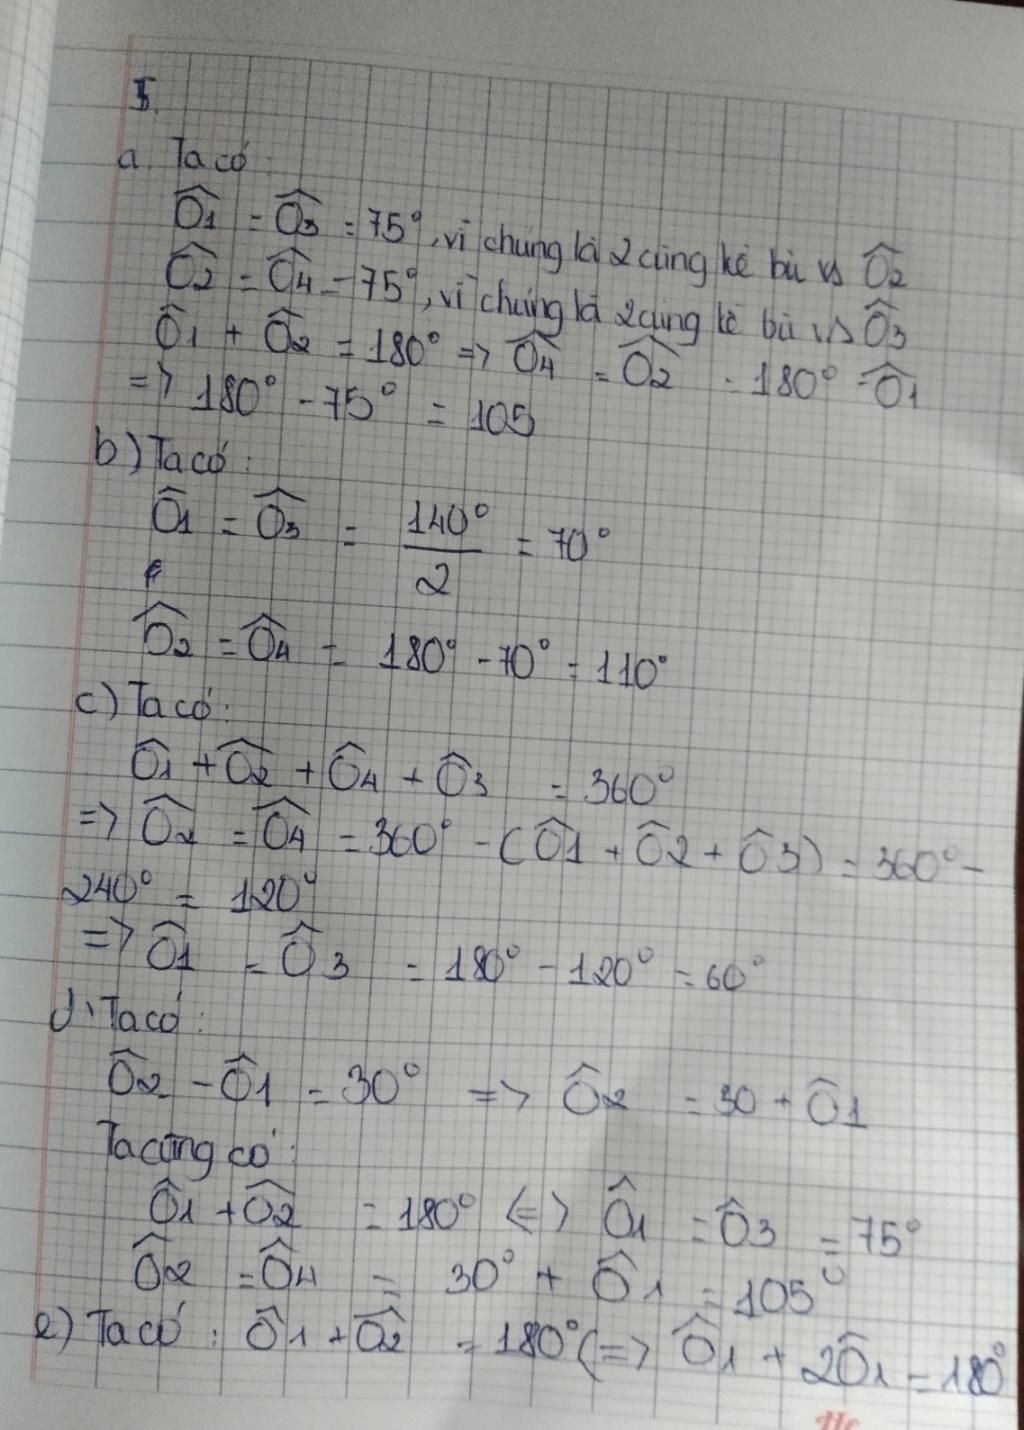 I.
a. Ta có:
Ô1 = Ô3 = 75°, vì chúng là 2 cùng kề bù vs Ô2
Ô2 = Ô4 = 75°, vì chúng là 2 cùng kề bù vs Ô3
Ô1 + Ô2 = 180° => Ô4 = Ô2 = 180° - Ô1
=> 180° - 75° = 105
b) Ta có:
Ô1 = Ô3 = 140°/2 = 70°
Ô2 = Ô4 = 180° - 70° = 110°
c) Ta có:
Ô1 + Ô2 + Ô4 + Ô3 = 360°
=> Ô2 = Ô4 = 360° - (Ô1 + Ô2 + Ô3) = 360° -
240° = 120°
=> Ô1 = Ô3 = 180° - 120° = 60°
d, Ta có:
Ô2 - Ô1 = 30° => Ô2 = 30 + Ô1
Ta cũng có:
Ô1 + Ô2 = 180° <=> Ô1 = Ô3 = 75°
Ô2 = Ô4 = 30° + Ô1 = 105°
e) Ta có: Ô1 + Ô2 = 180° (=> Ô1 + 2Ô1 = 180°